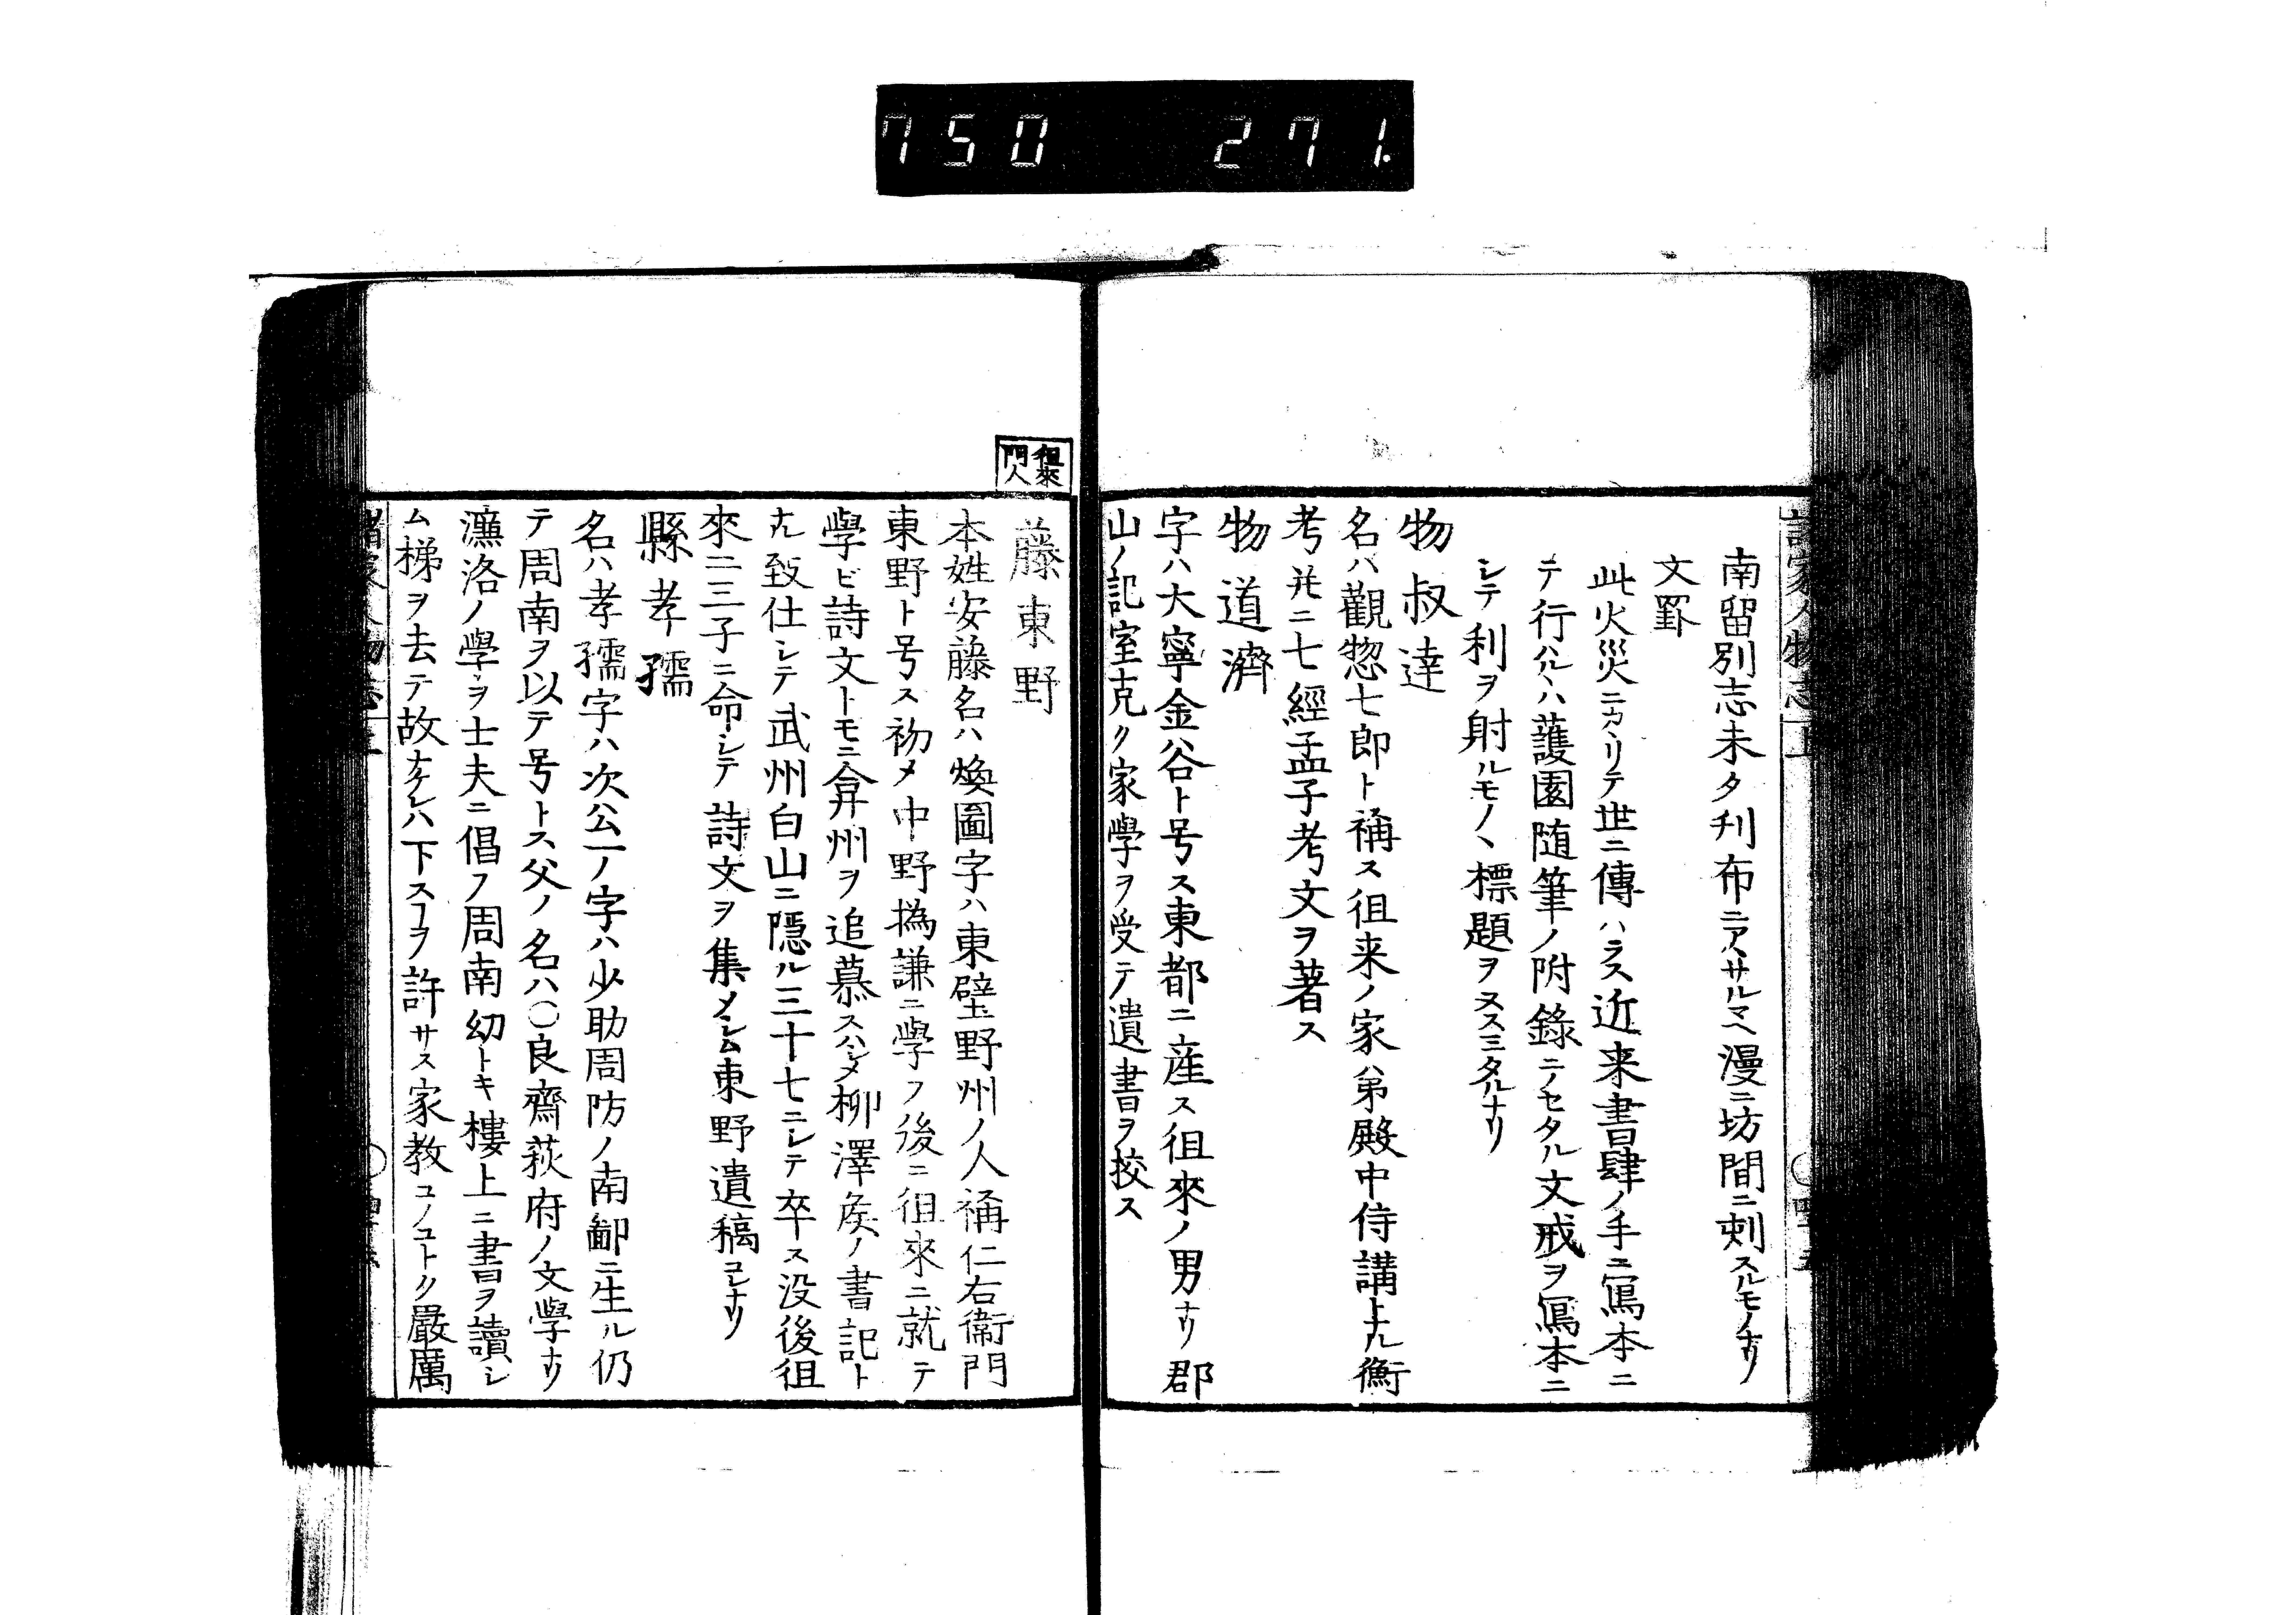 750 271.
諸家人物志 上
南留別志未タ刋布ニアラサルマヘ漫ニ坊間ニ刺スルモノナリ
文罫
此火災ニカヽリテ世ニ傳ハラス近来書肆ノ手ニ寫本ニ
テ行ハルヽハ蘐園随筆ノ附錄ニノセタル文戒ヲ寫本ニ
シテ利ヲ射ルモノヽ標題ヲヌスミタルナリ
物叔達
名ハ觀惣七郎ト稱ス徂来ノ家弟殿中侍講トナル衡
考幷ニ七經孟子考文ヲ著ス
物道濟
字ハ大寧金谷ト号ス東都ニ産ス徂來ノ男ナリ郡
山ノ記室克ク家學ヲ受テ遺書ヲ挍ス
徂來
門人
藤東野
本姓安藤名ハ煥圖字ハ東壁野州ノ人稱仁右衞門
東野ト号ス初メ中野撝謙ニ學フ後ニ徂來ニ就テ
學ビ詩文トモニ弇州ヲ追慕スハシメ柳澤矦ノ書記ト
ナル致仕シテ武州白山ニ隱ル三十七ニシテ卒ス没後徂
來二三子ニ命シテ詩文ヲ集メシム東野遺稿コレナリ
縣孝孺
名ハ孝孺字ハ次公一ノ字ハ少助周防ノ南鄙ニ生ル仍
テ周南ヲ以テ号トス父ノ名ハ〇良齋萩府ノ文學ナリ
濂洛ノ學ヲ士夫ニ倡フ周南幼トキ樓上ニ書ヲ讀シ
ム梯ヲ去テ故ナケレハ下スヿヲ許サス家教コノコトク嚴厲
諸家人物志 上